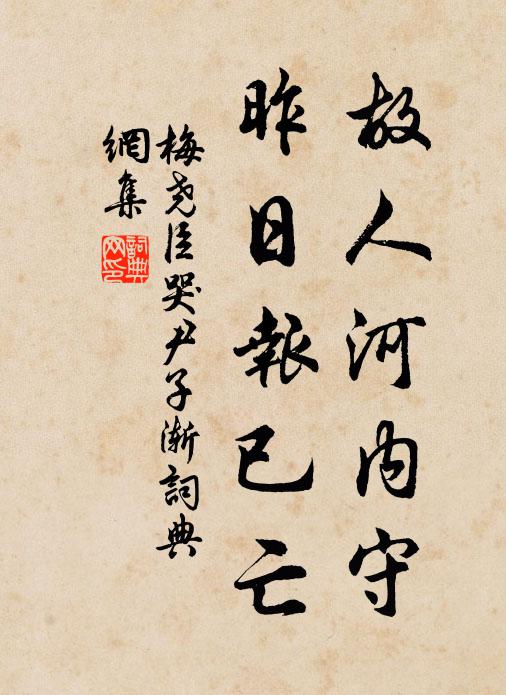 故人河内守
昨日報已亡
梅尧臣哭尹子漸詞典
網集
詞典
网印